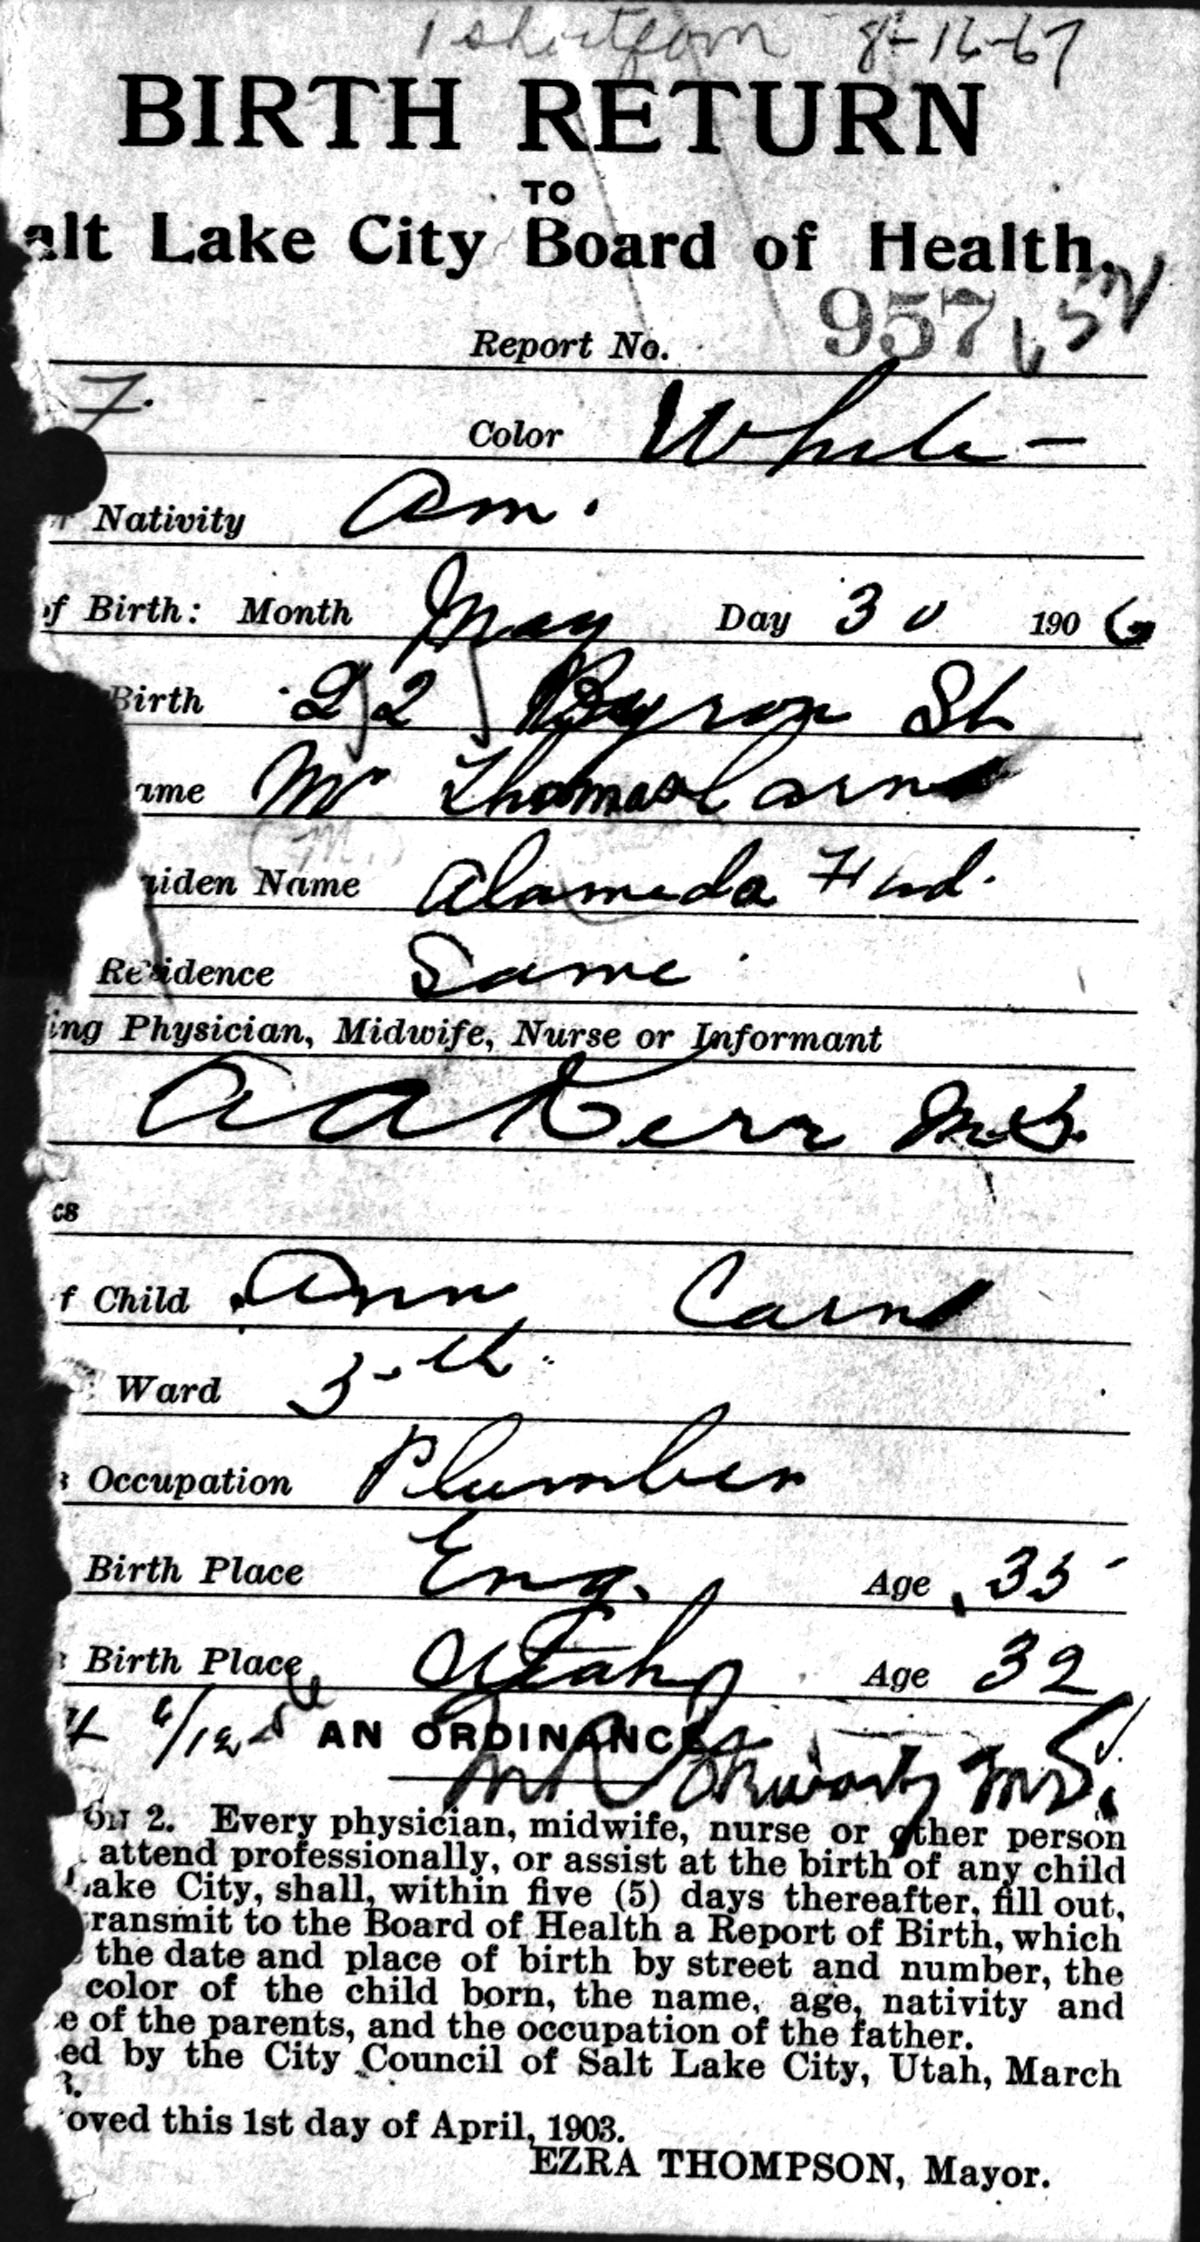 1 shortform 8-16-67
BIRTH RETURN
TO
alt Lake City Board of Health.
Report No. 957
F. Color White -
Nativity Am.
of Birth: Month May Day 30 1906
Birth 22 Byron St
ame Mr Thomas Carns
aiden Name Alameda
Residence Same
ing Physician, Midwife, Nurse or Informant
A A Kerr M.D.
cs
f Child Ann Carns
Ward 5th
s Occupation Plumber
Birth Place Eng. Age 35
s Birth Place Utah Age 32
AN ORDINANCE
on 2. Every physician, midwife, nurse or other person
attend professionally, or assist at the birth of any child
Lake City, shall, within five (5) days thereafter, fill out,
ransmit to the Board of Health a Report of Birth, which
the date and place of birth by street and number, the
color of the child born, the name, age, nativity and
e of the parents, and the occupation of the father.
ed by the City Council of Salt Lake City, Utah, March
3.
oved this 1st day of April, 1903.
EZRA THOMPSON, Mayor.